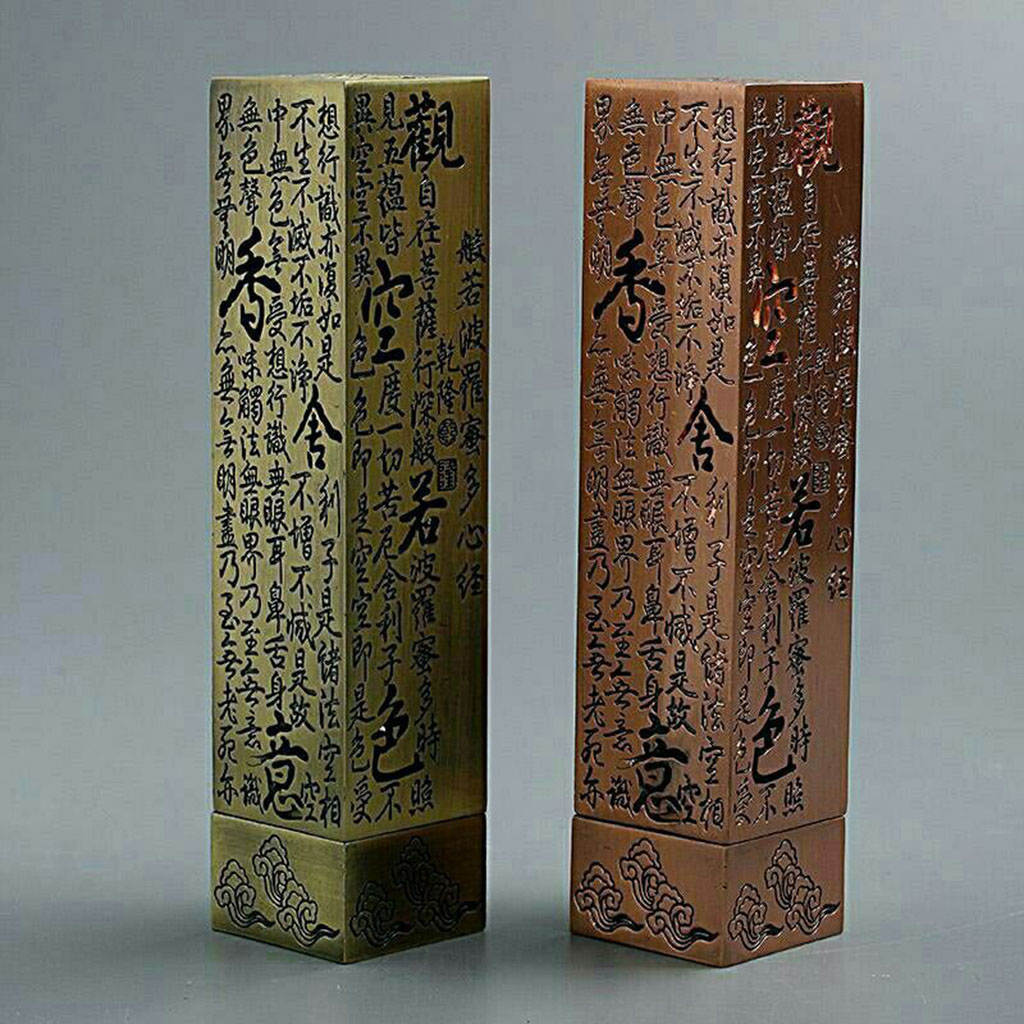 般若波羅蜜多心經
乾隆
觀自在菩薩行深般若波羅蜜多時照
見五蘊皆空度一切苦厄舍利子色不
異空空不異色色即是空空即是色受
想行識亦復如是舍利子是諸法空相
不生不滅不垢不淨不增不減是故空
中無色無受想行識無眼耳鼻舌身意
無色聲香味觸法無眼界乃至無意識
界無無明亦無無明盡乃至無老死亦
般若波羅蜜多心經
乾隆
觀自在菩薩行深般若波羅蜜多時照
見五蘊皆空度一切苦厄舍利子色不
異空空不異色色即是空空即是色受
想行識亦復如是舍利子是諸法空相
不生不滅不垢不淨不增不減是故空
中無色無受想行識無眼耳鼻舌身意
無色聲香味觸法無眼界乃至無意識
界無無明亦無無明盡乃至無老死亦